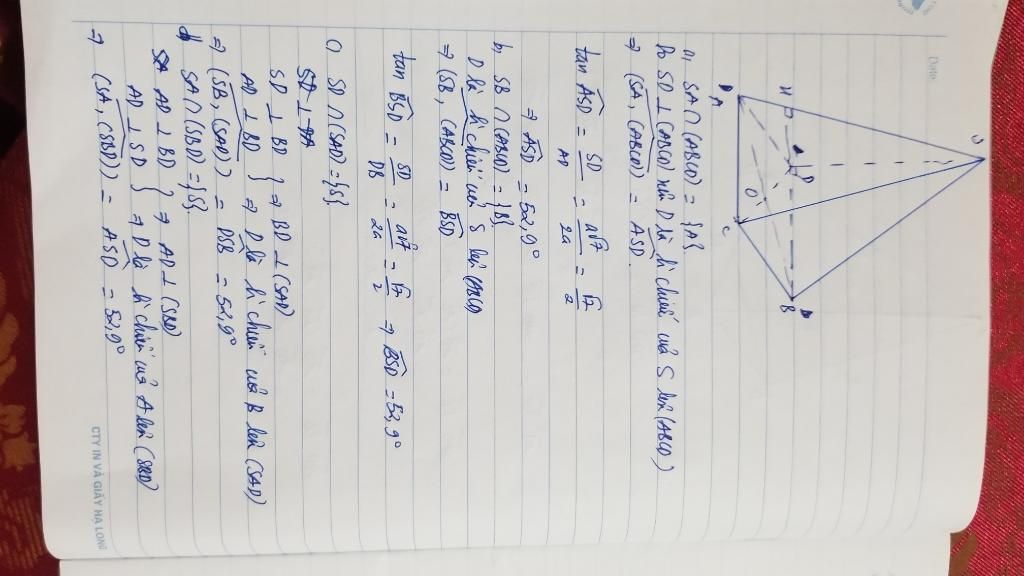 Date
S
H
D
B
A
O
C
a, SA ∩ (ABCD) = {A}
Do SD ⊥ (ABCD) nên D là hì chiếu của S lên (ABCD)
⇒ (SA, (ABCD)) = ASD.
tan ASD = SD/AD = a√7/2a = √7/2
⇒ ASD = 52,9°
b, SB ∩ (ABCD) = {B}
D là hì chiếu của S lên (ABCD)
⇒ (SB, (ABCD)) = BSD
tan BSD = SD/DB = a√7/2a = √7/2 ⇒ BSD = 52,9°
c) SD ∩ (SAD) = {S}
SD ⊥ BD } ⇒ BD ⊥ (SAD)
AD ⊥ BD } ⇒ D là hì chiếu của B lên (SAD)
⇒ (SB, (SAD)) = DSB = 52,9°
d, SA ∩ (SBD) = {S}
AD ⊥ BD } ⇒ AD ⊥ (SBD)
AD ⊥ SD } ⇒ D là hì chiếu của A lên (SBD)
⇒ (SA, (SBD)) = ASD = 52,9°
CTY IN VÀ GIẤY HẠ LONG